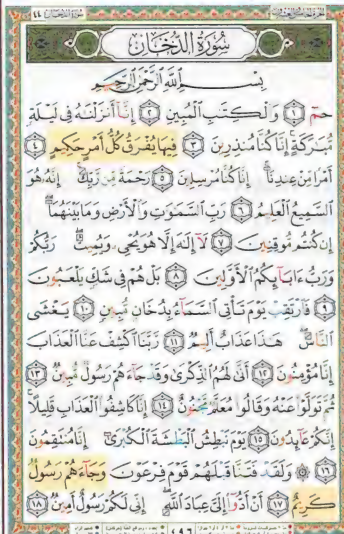 سُورَةُ الدُّخَانِ
بِسْمِ اللَّهِ الرَّحْمَٰنِ الرَّحِيمِ
حمٓ ١ وَالْكِتَابِ الْمُبِينِ ٢ إِنَّا أَنزَلْنَاهُ فِي لَيْلَةٍ
مُّبَارَكَةٍ إِنَّا كُنَّا مُنذِرِينَ ٣ فِيهَا يُفْرَقُ كُلُّ أَمْرٍ حَكِيمٍ ٤
أَمْرًا مِّنْ عِندِنَا إِنَّا كُنَّا مُرْسِلِينَ ٥ رَحْمَةً مِّن رَّبِّكَ إِنَّهُ هُوَ
السَّمِيعُ الْعَلِيمُ ٦ رَبِّ السَّمَٰوَٰتِ وَالْأَرْضِ وَمَا بَيْنَهُمَا
إِن كُنتُم مُّوقِنِينَ ٧ لَا إِلَٰهَ إِلَّا هُوَ يُحْيِي وَيُمِيتُ رَبُّكُمْ
وَرَبُّ ءَابَائِكُمُ الْأَوَّلِينَ ٨ بَلْ هُمْ فِي شَكٍّ يَلْعَبُونَ
٩ فَارْتَقِبْ يَوْمَ تَأْتِي السَّمَاءُ بِدُخَانٍ مُّبِينٍ ١٠ يَغْشَى
النَّاسَ هَٰذَا عَذَابٌ أَلِيمٌ ١١ رَّبَّنَا اكْشِفْ عَنَّا الْعَذَابَ
إِنَّا مُؤْمِنُونَ ١٢ أَنَّىٰ لَهُمُ الذِّكْرَىٰ وَقَدْ جَاءَهُمْ رَسُولٌ مُّبِينٌ ١٣
ثُمَّ تَوَلَّوْا عَنْهُ وَقَالُوا مُعَلَّمٌ مَّجْنُونٌ ١٤ إِنَّا كَاشِفُو الْعَذَابِ قَلِيلًا
إِنَّكُمْ عَائِدُونَ ١٥ يَوْمَ نَبْطِشُ الْبَطْشَةَ الْكُبْرَىٰ إِنَّا مُنتَقِمُونَ
١٦ ۞ وَلَقَدْ فَتَنَّا قَبْلَهُمْ قَوْمَ فِرْعَوْنَ وَجَاءَهُمْ رَسُولٌ
كَرِيمٌ ١٧ أَنْ أَدُّوا إِلَيَّ عِبَادَ اللَّهِ إِنِّي لَكُمْ رَسُولٌ أَمِينٌ ١٨
٤٩٦